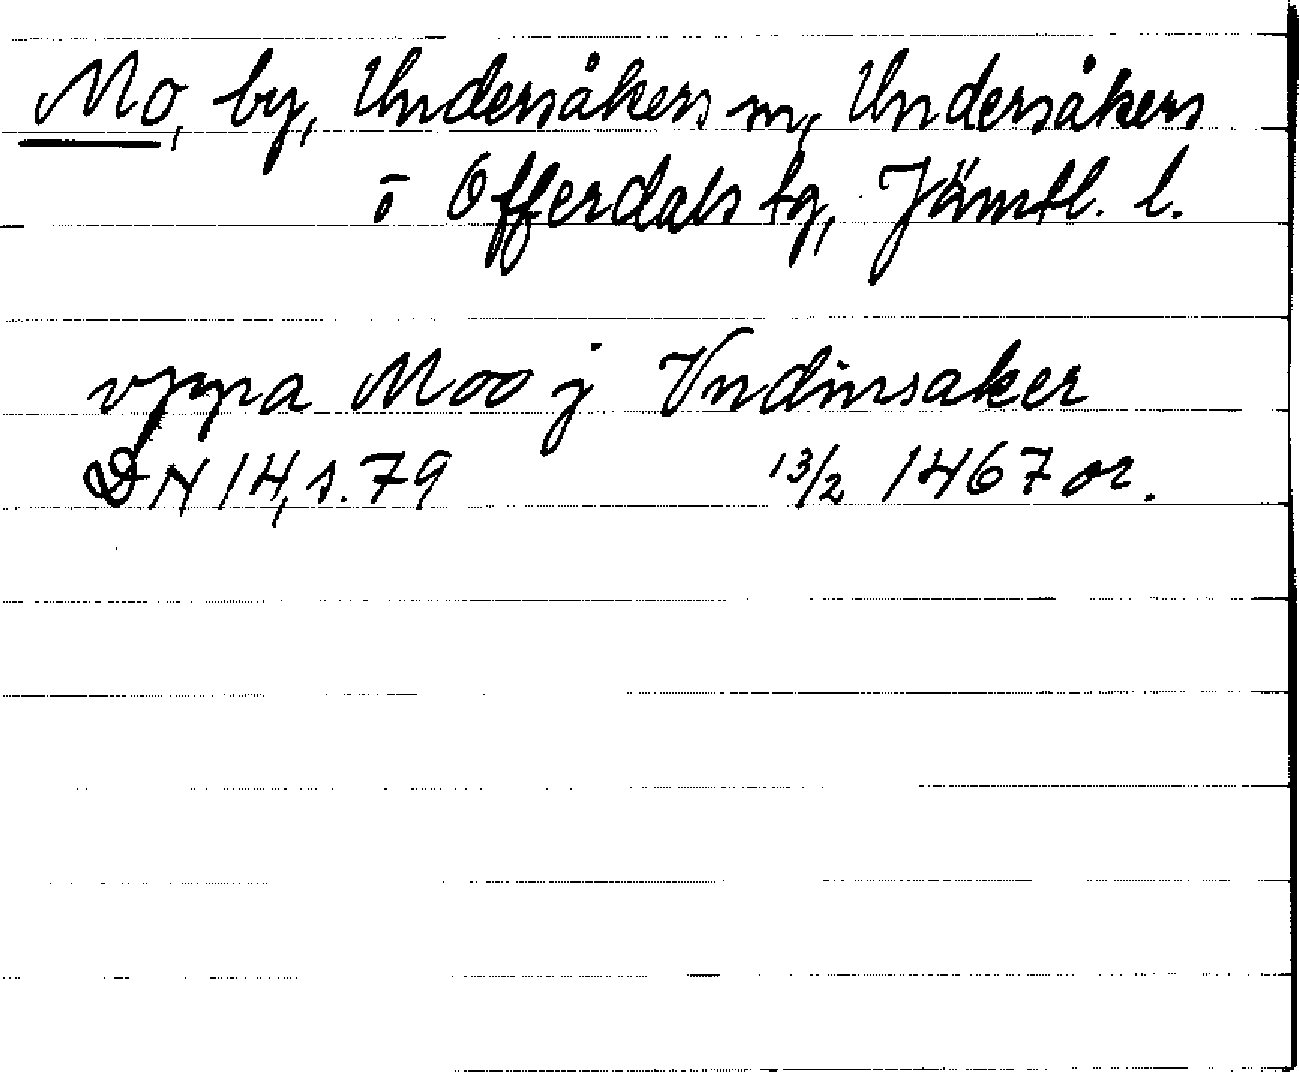 Mo, by, Undersåkers sn, Undersåkers
o Offerdals tg, Jämtl. l.
vppa Moo j Vndinsaker
DN 14, s. 79 13/2 1467 or.